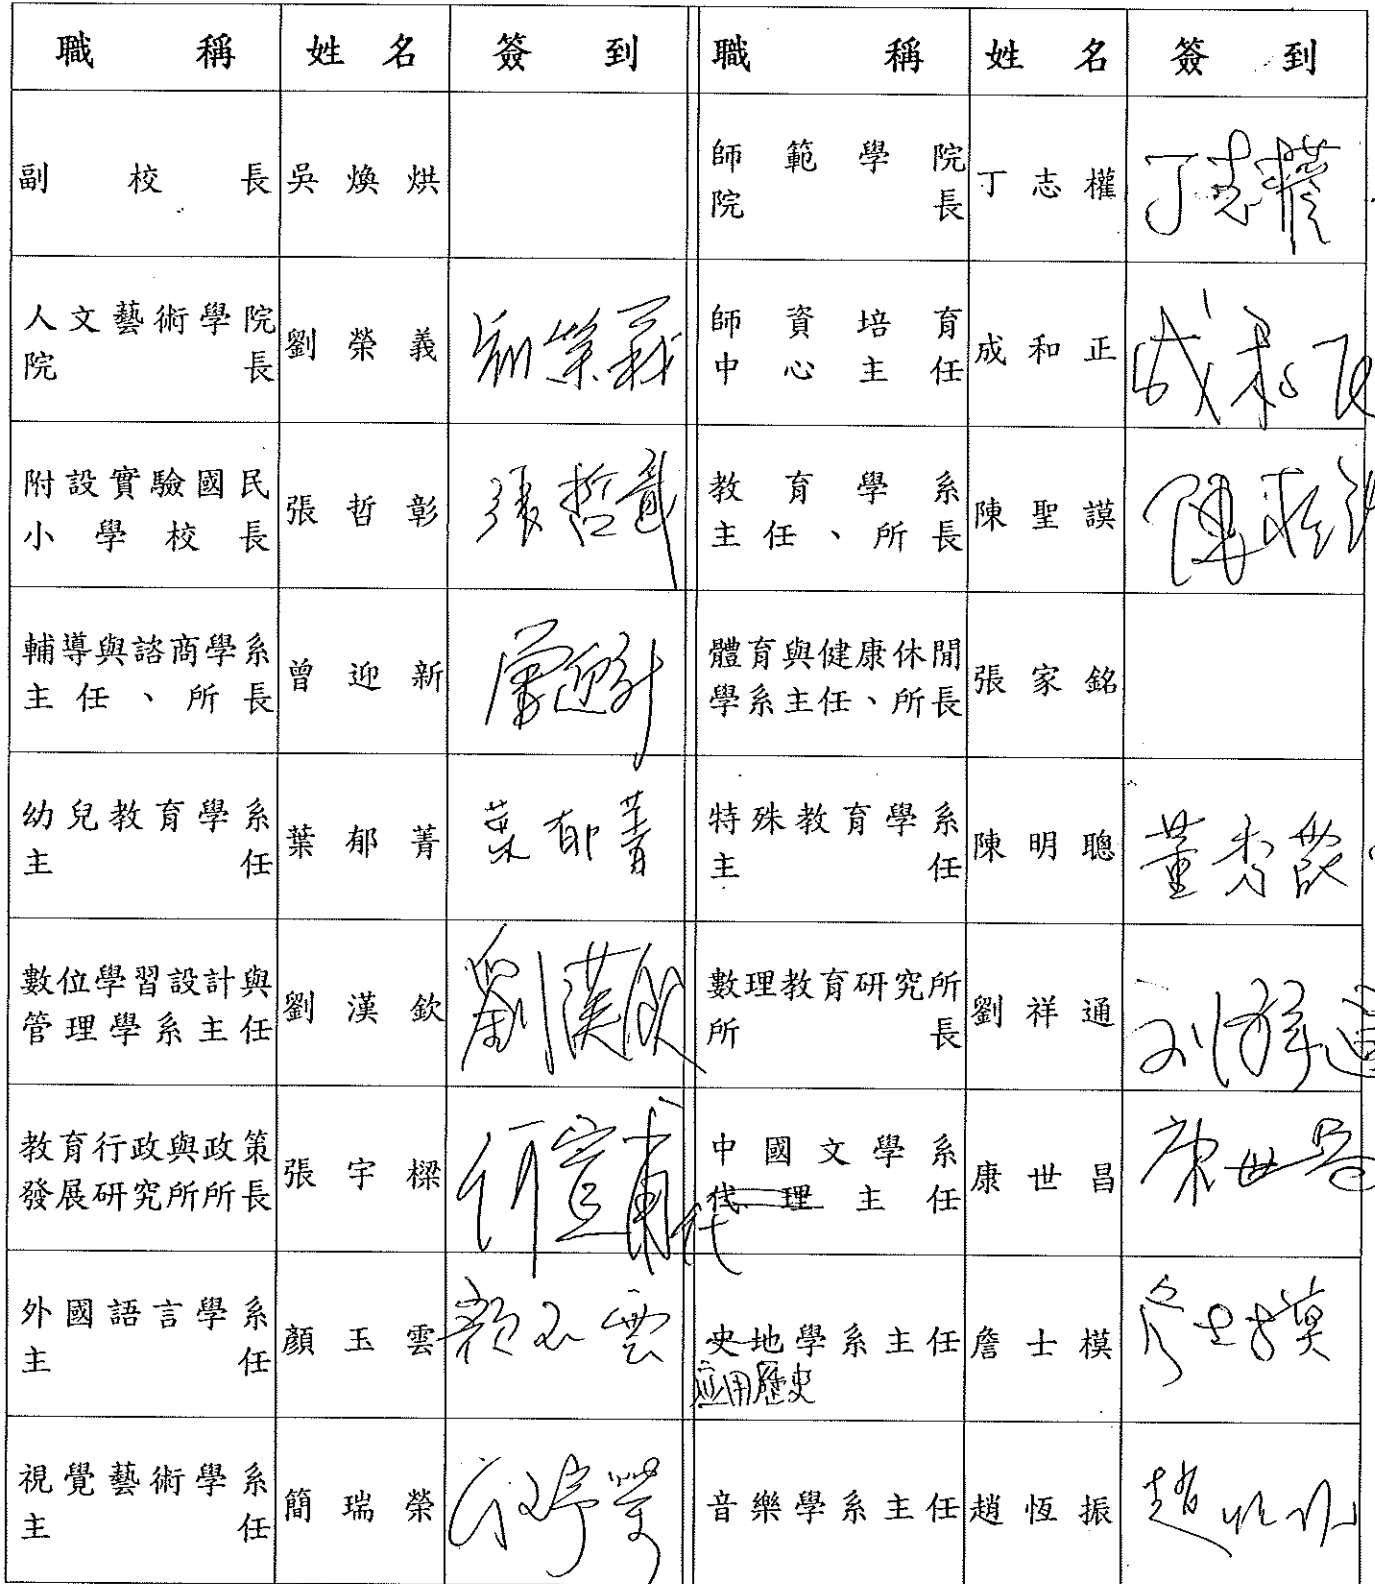 職稱 姓名 簽到 職稱 姓名 簽到
副校長 吳煥烘 師範學院院長 丁志權 丁志權
人文藝術學院院長 劉榮義 劉榮義 師資培育中心主任 成和正 成和正
附設實驗國民小學校長 張哲彰 張哲彰 教育學系主任、所長 陳聖謨 陳聖謨
輔導與諮商學系主任、所長 曾迎新 曾迎新 體育與健康休閒學系主任、所長 張家銘
幼兒教育學系主任 葉郁菁 葉郁菁 特殊教育學系主任 陳明聰 董秀
數位學習設計與管理學系主任 劉漢欽 劉漢欽 數理教育研究所所長 劉祥通 刘祥通
教育行政與政策發展研究所所長 張宇樑 何宣甫代 中國文學系代理主任 康世昌 康世昌
外國語言學系主任 顏玉雲 顏玉雲 史地學系主任 詹士模 詹士模
应用歷史
視覺藝術學系主任 簡瑞榮 簡瑞榮 音樂學系主任 趙恆振 趙恆振